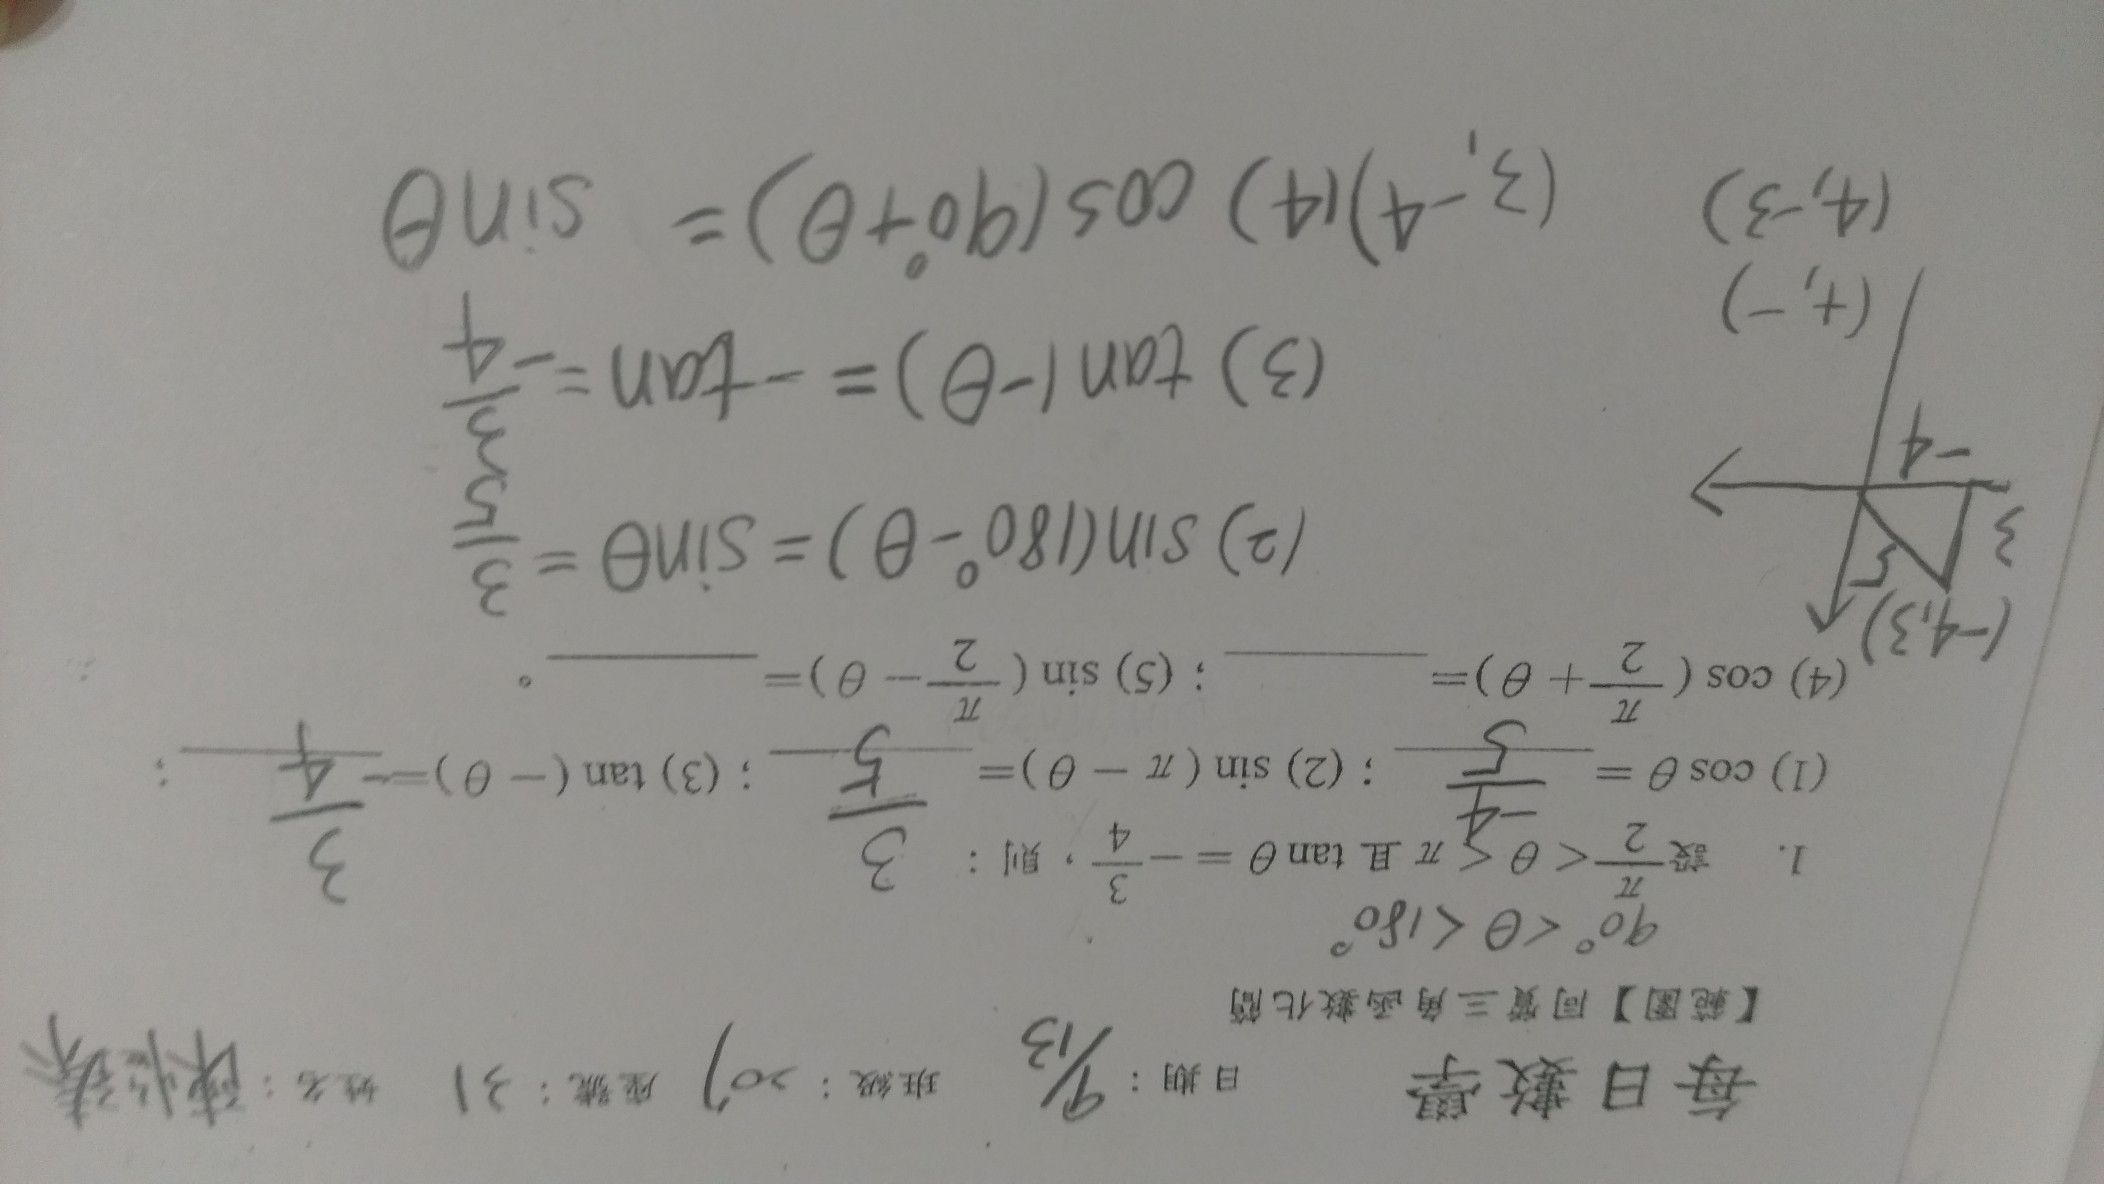 每日數學 日期：9/13 班級：207 座號：31 姓名：陳
【範圍】同質三角函數化簡
90°<θ<180°
1. 設 π/2 < θ < π 且 tan θ = − 3/4，則：
(1) cos θ = -4/5 ；(2) sin ( π − θ)= 3/5 ；(3) tan ( − θ)= - 3/4 ；
(4) cos ( π/2 + θ)= ______ ；(5) sin ( π/2 − θ)= ______ 。
(-4,3)
5
3
-4
(2) sin(180°-θ) = sinθ = 3/5
(3) tan(-θ) = -tan = - 3/4
(+,-)
(4,-3) (3,-4) (4) cos(90°+θ) = sinθ